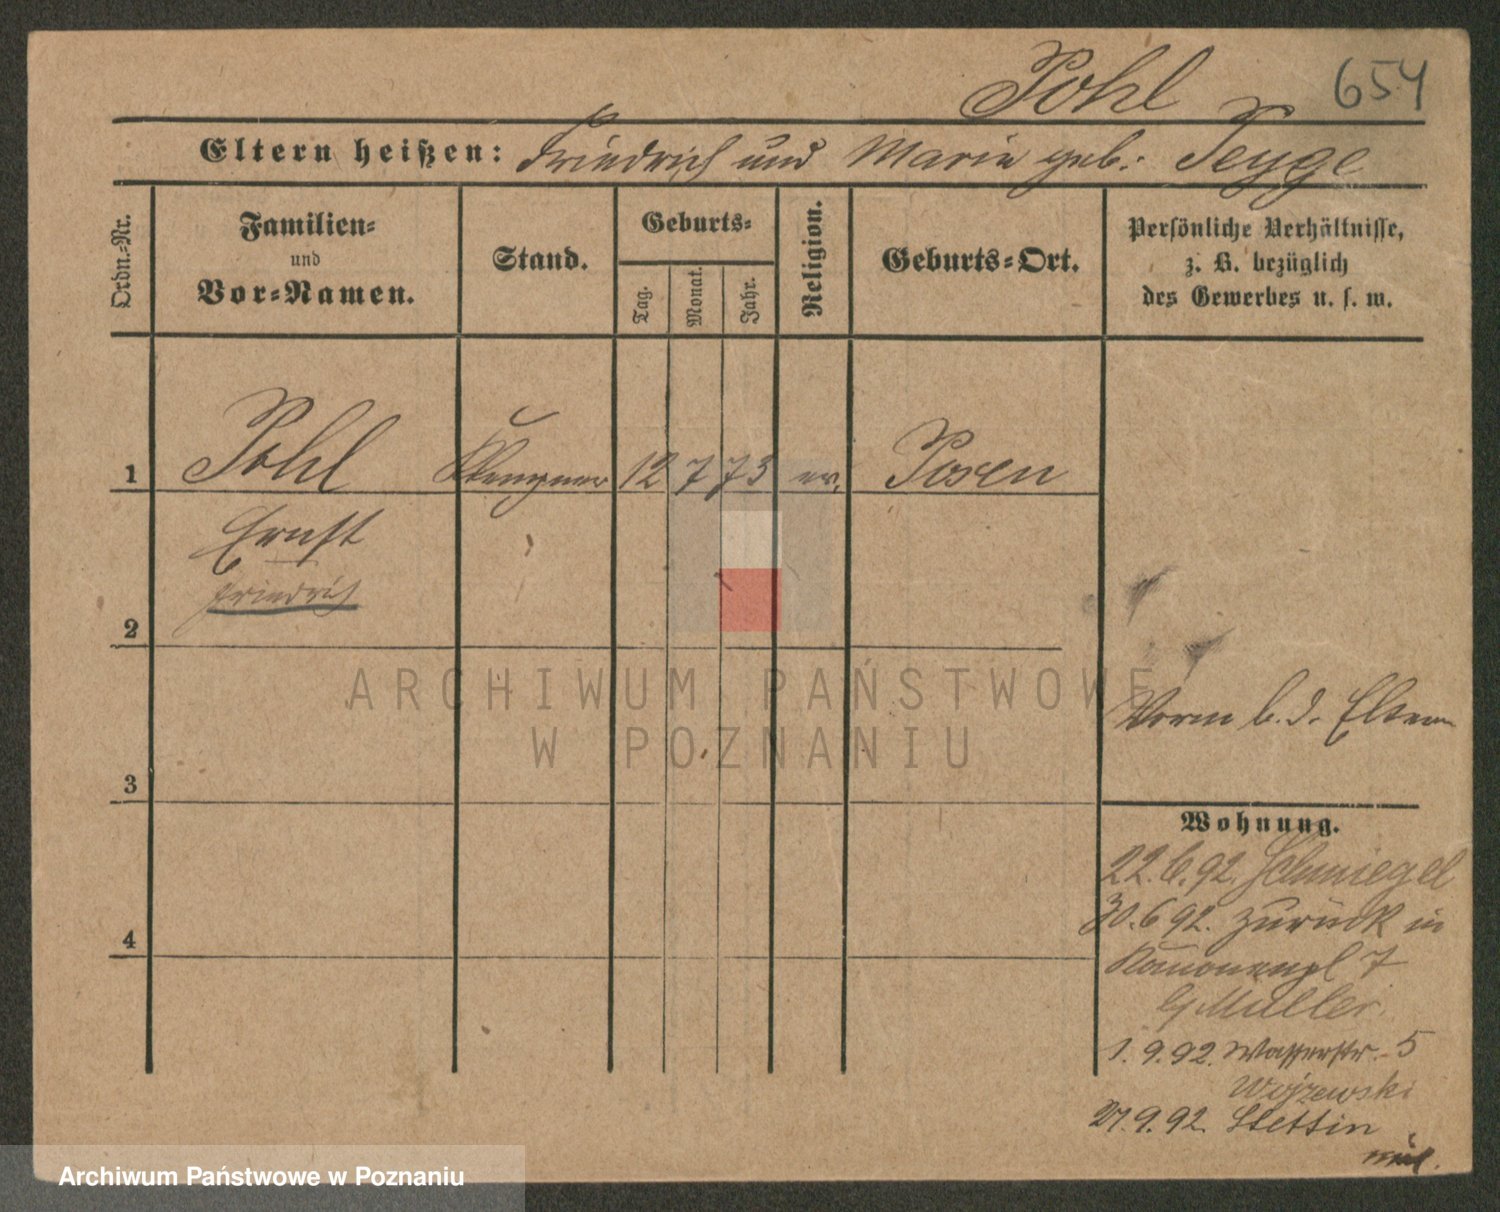 Pohl 654
Eltern heißen: Friedrich und Marie geb: Teyge
Ordn.-Nr.
Familien-
und
Vor-Namen.
Stand.
Geburts-
Tag.
Monat.
Jahr.
Religion.
Geburts-Ort.
Persönliche Verhältnisse,
z. B. bezüglich
des Gewerbes u. s. w.
1 Pohl Klempner 12 7 73 ev. Posen
Ernst
Friedrich
2
3
4
Vorm b. d. Eltern
Wohnung.
22.6.92. Schmiegel
30.6 92. zurück in
7
Müller.
1.9.92. Wasserstr. 5
Wojzewski
27.9.92. Stettin
ARCHIWUM PAŃSTWOWE
W POZNANIU
Archiwum Państwowe w Poznaniu